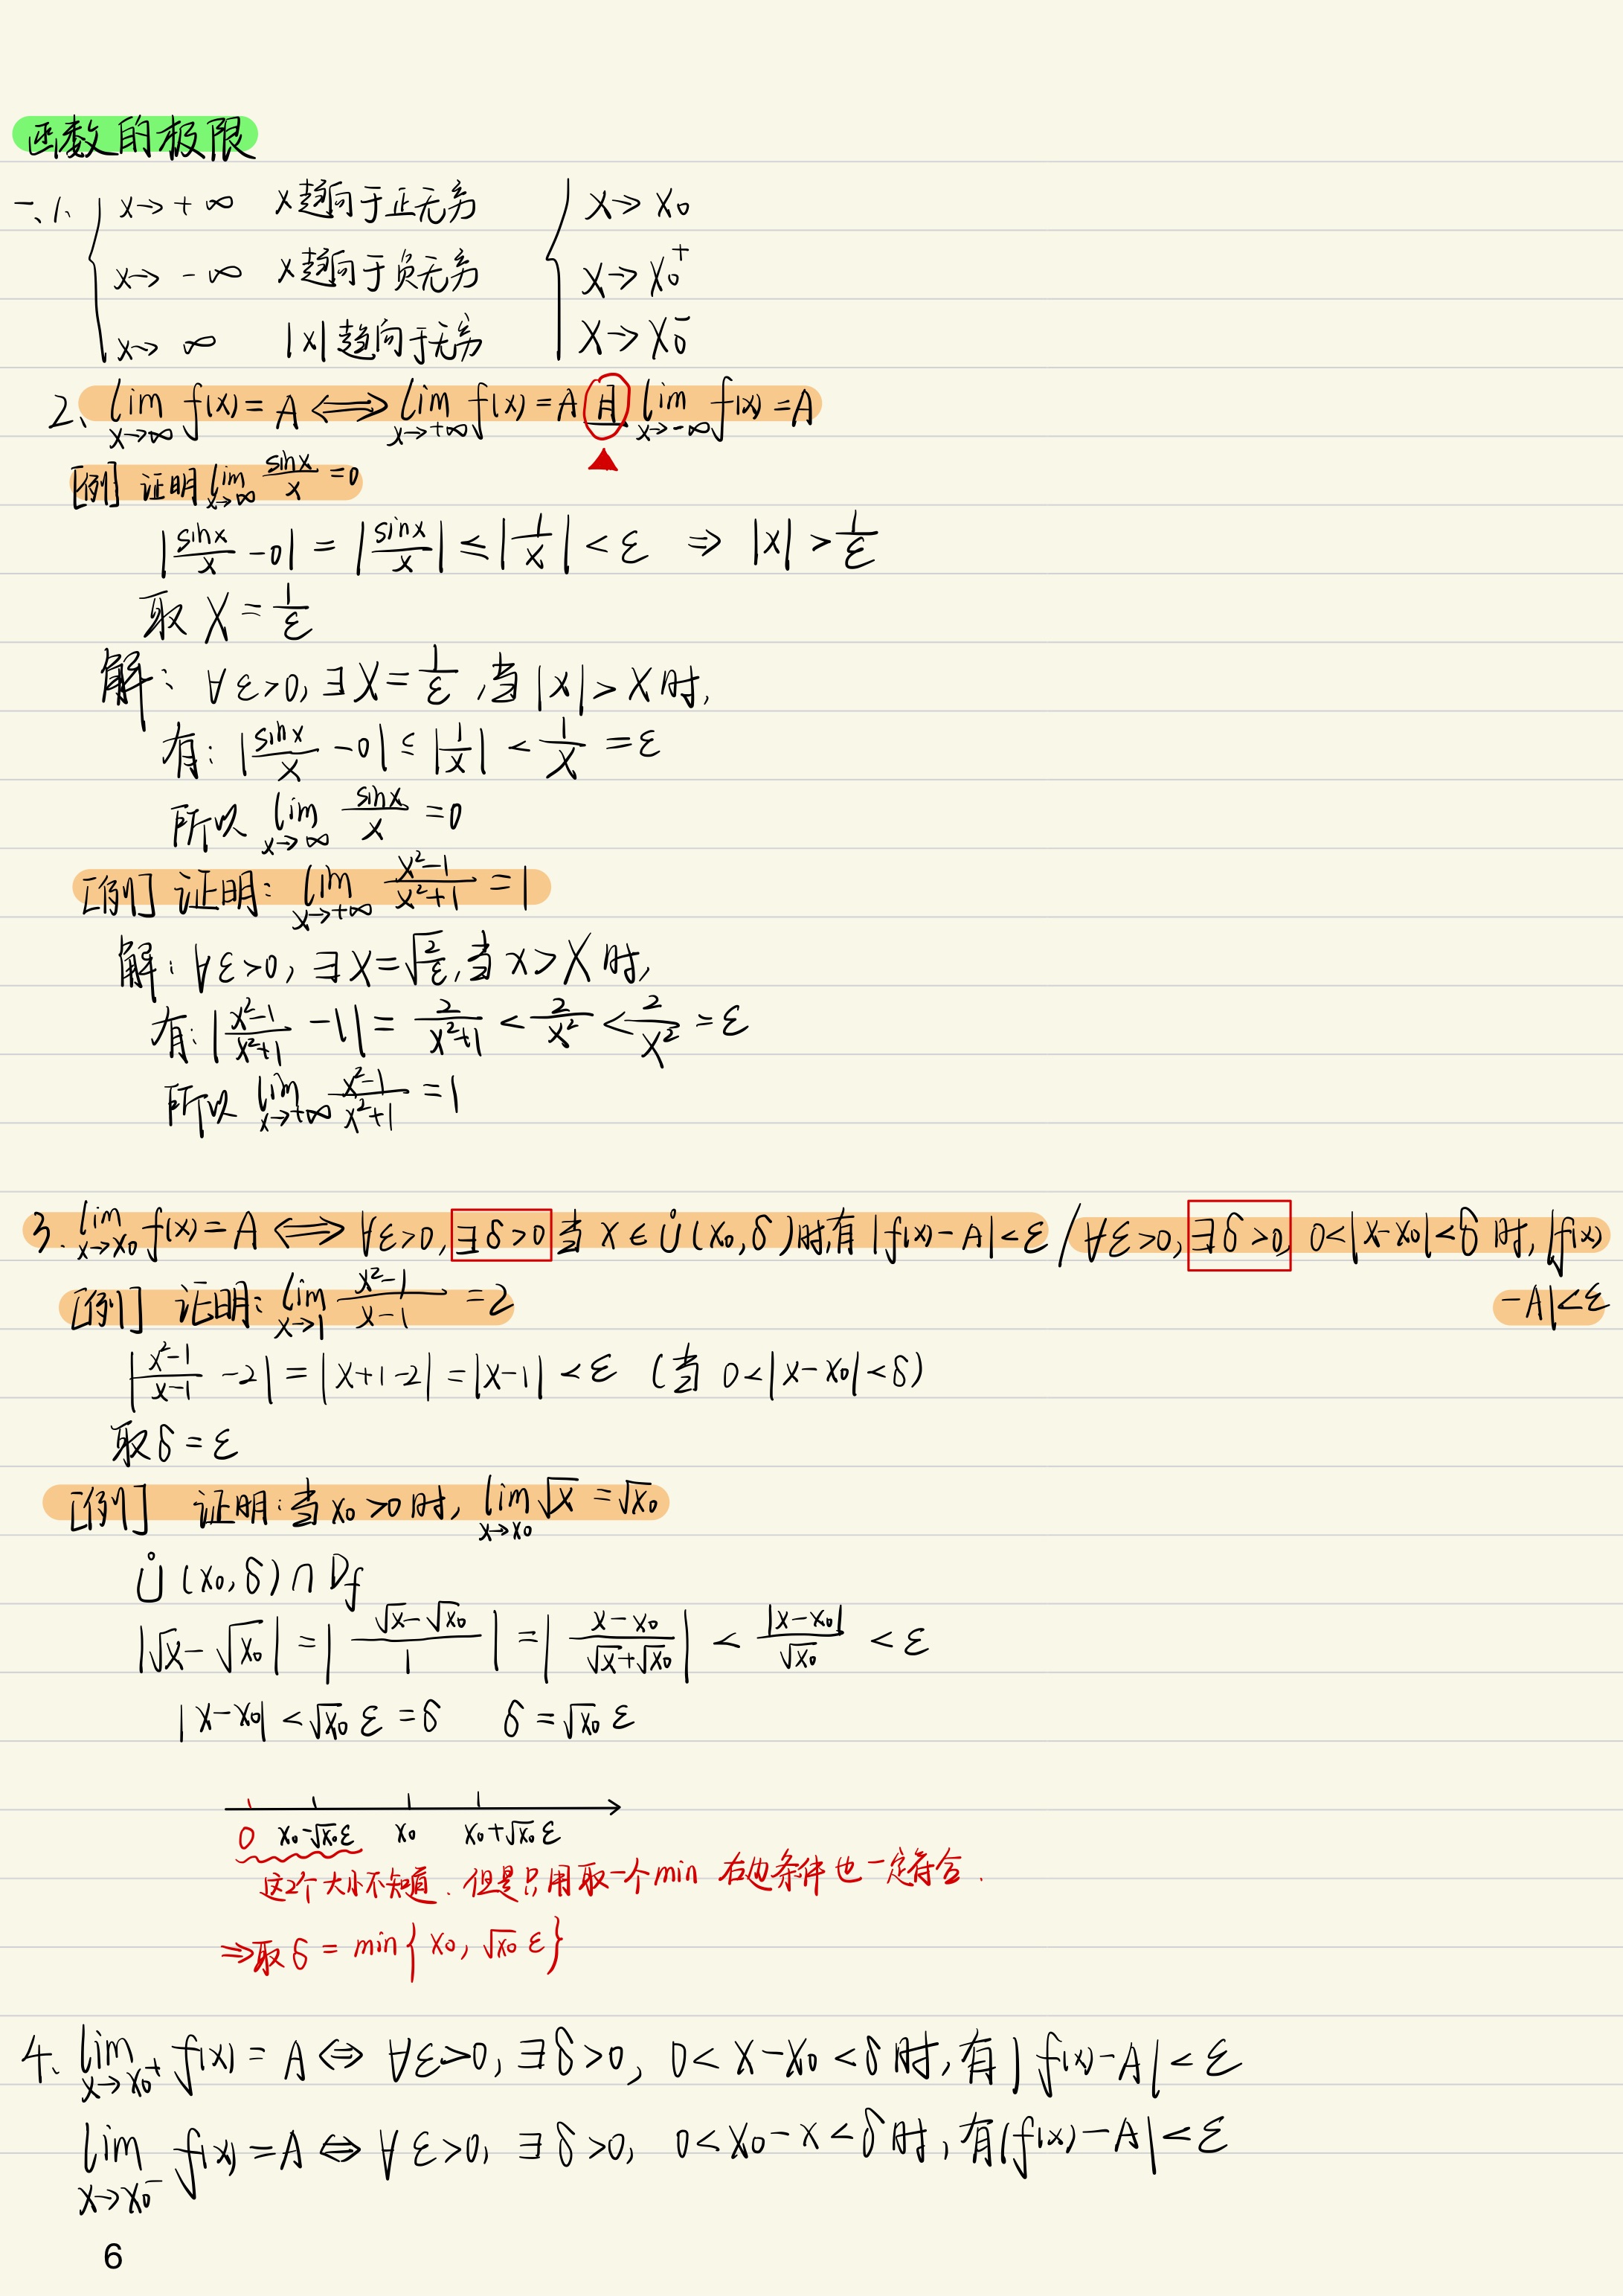 函数的极限
一、1、 { x→+∞ x趋向于正无穷 { x→x₀
x→-∞ x趋向于负无穷 x→x₀⁺
x→∞ |x|趋向于无穷 x→x₀⁻
2、 lim_{x→∞} f(x) = A ⟺ lim_{x→+∞} f(x) = A 且 lim_{x→-∞} f(x) = A
[例] 证明 lim_{x→∞} sinx/x = 0
|sinx/x - 0| = |sinx/x| ≤ |1/x| < ε ⇒ |x| > 1/ε
取 X = 1/ε
解: ∀ε>0, ∃X = 1/ε, 当|x| > X时,
有: |sinx/x - 0| ≤ |1/x| < 1/X = ε
所以 lim_{x→∞} sinx/x = 0
[例] 证明: lim_{x→+∞} (x²-1)/(x²+1) = 1
解: ∀ε>0, ∃X = √(2/ε), 当 x > X 时,
有: |(x²-1)/(x²+1) - 1| = 2/(x²+1) < 2/x² < 2/X² = ε
所以 lim_{x→+∞} (x²-1)/(x²+1) = 1
3. lim_{x→x₀} f(x) = A ⟺ ∀ε>0, ∃δ>0 当 x∈Ů(x₀,δ)时,有|f(x)-A|<ε / ∀ε>0, ∃δ>0, 0<|x-x₀|<δ 时, |f(x)
-A|<ε
[例] 证明: lim_{x→1} (x²-1)/(x-1) = 2
|(x²-1)/(x-1) - 2| = |x+1-2| = |x-1| < ε (当 0<|x-x₀|<δ)
取δ = ε
[例] 证明: 当 x₀>0 时, lim_{x→x₀} √x = √x₀
Ů(x₀,δ)∩D_f
|√x - √x₀| = |(√x-√x₀)/1| = |(x-x₀)/(√x+√x₀)| < |x-x₀|/√x₀ < ε
|x-x₀| < √x₀ ε = δ δ = √x₀ ε
0 x₀-√x₀ε x₀ x₀+√x₀ε
这2个大小不知道. 但是只用取一个min 右边条件也一定符合.
⇒取 δ = min{x₀, √x₀ ε}
4、 lim_{x→x₀⁺} f(x) = A ⟺ ∀ε>0, ∃δ>0, 0<x-x₀<δ时, 有|f(x)-A|<ε
lim_{x→x₀⁻} f(x) = A ⟺ ∀ε>0, ∃δ>0, 0<x₀-x<δ时, 有|f(x)-A|<ε
6